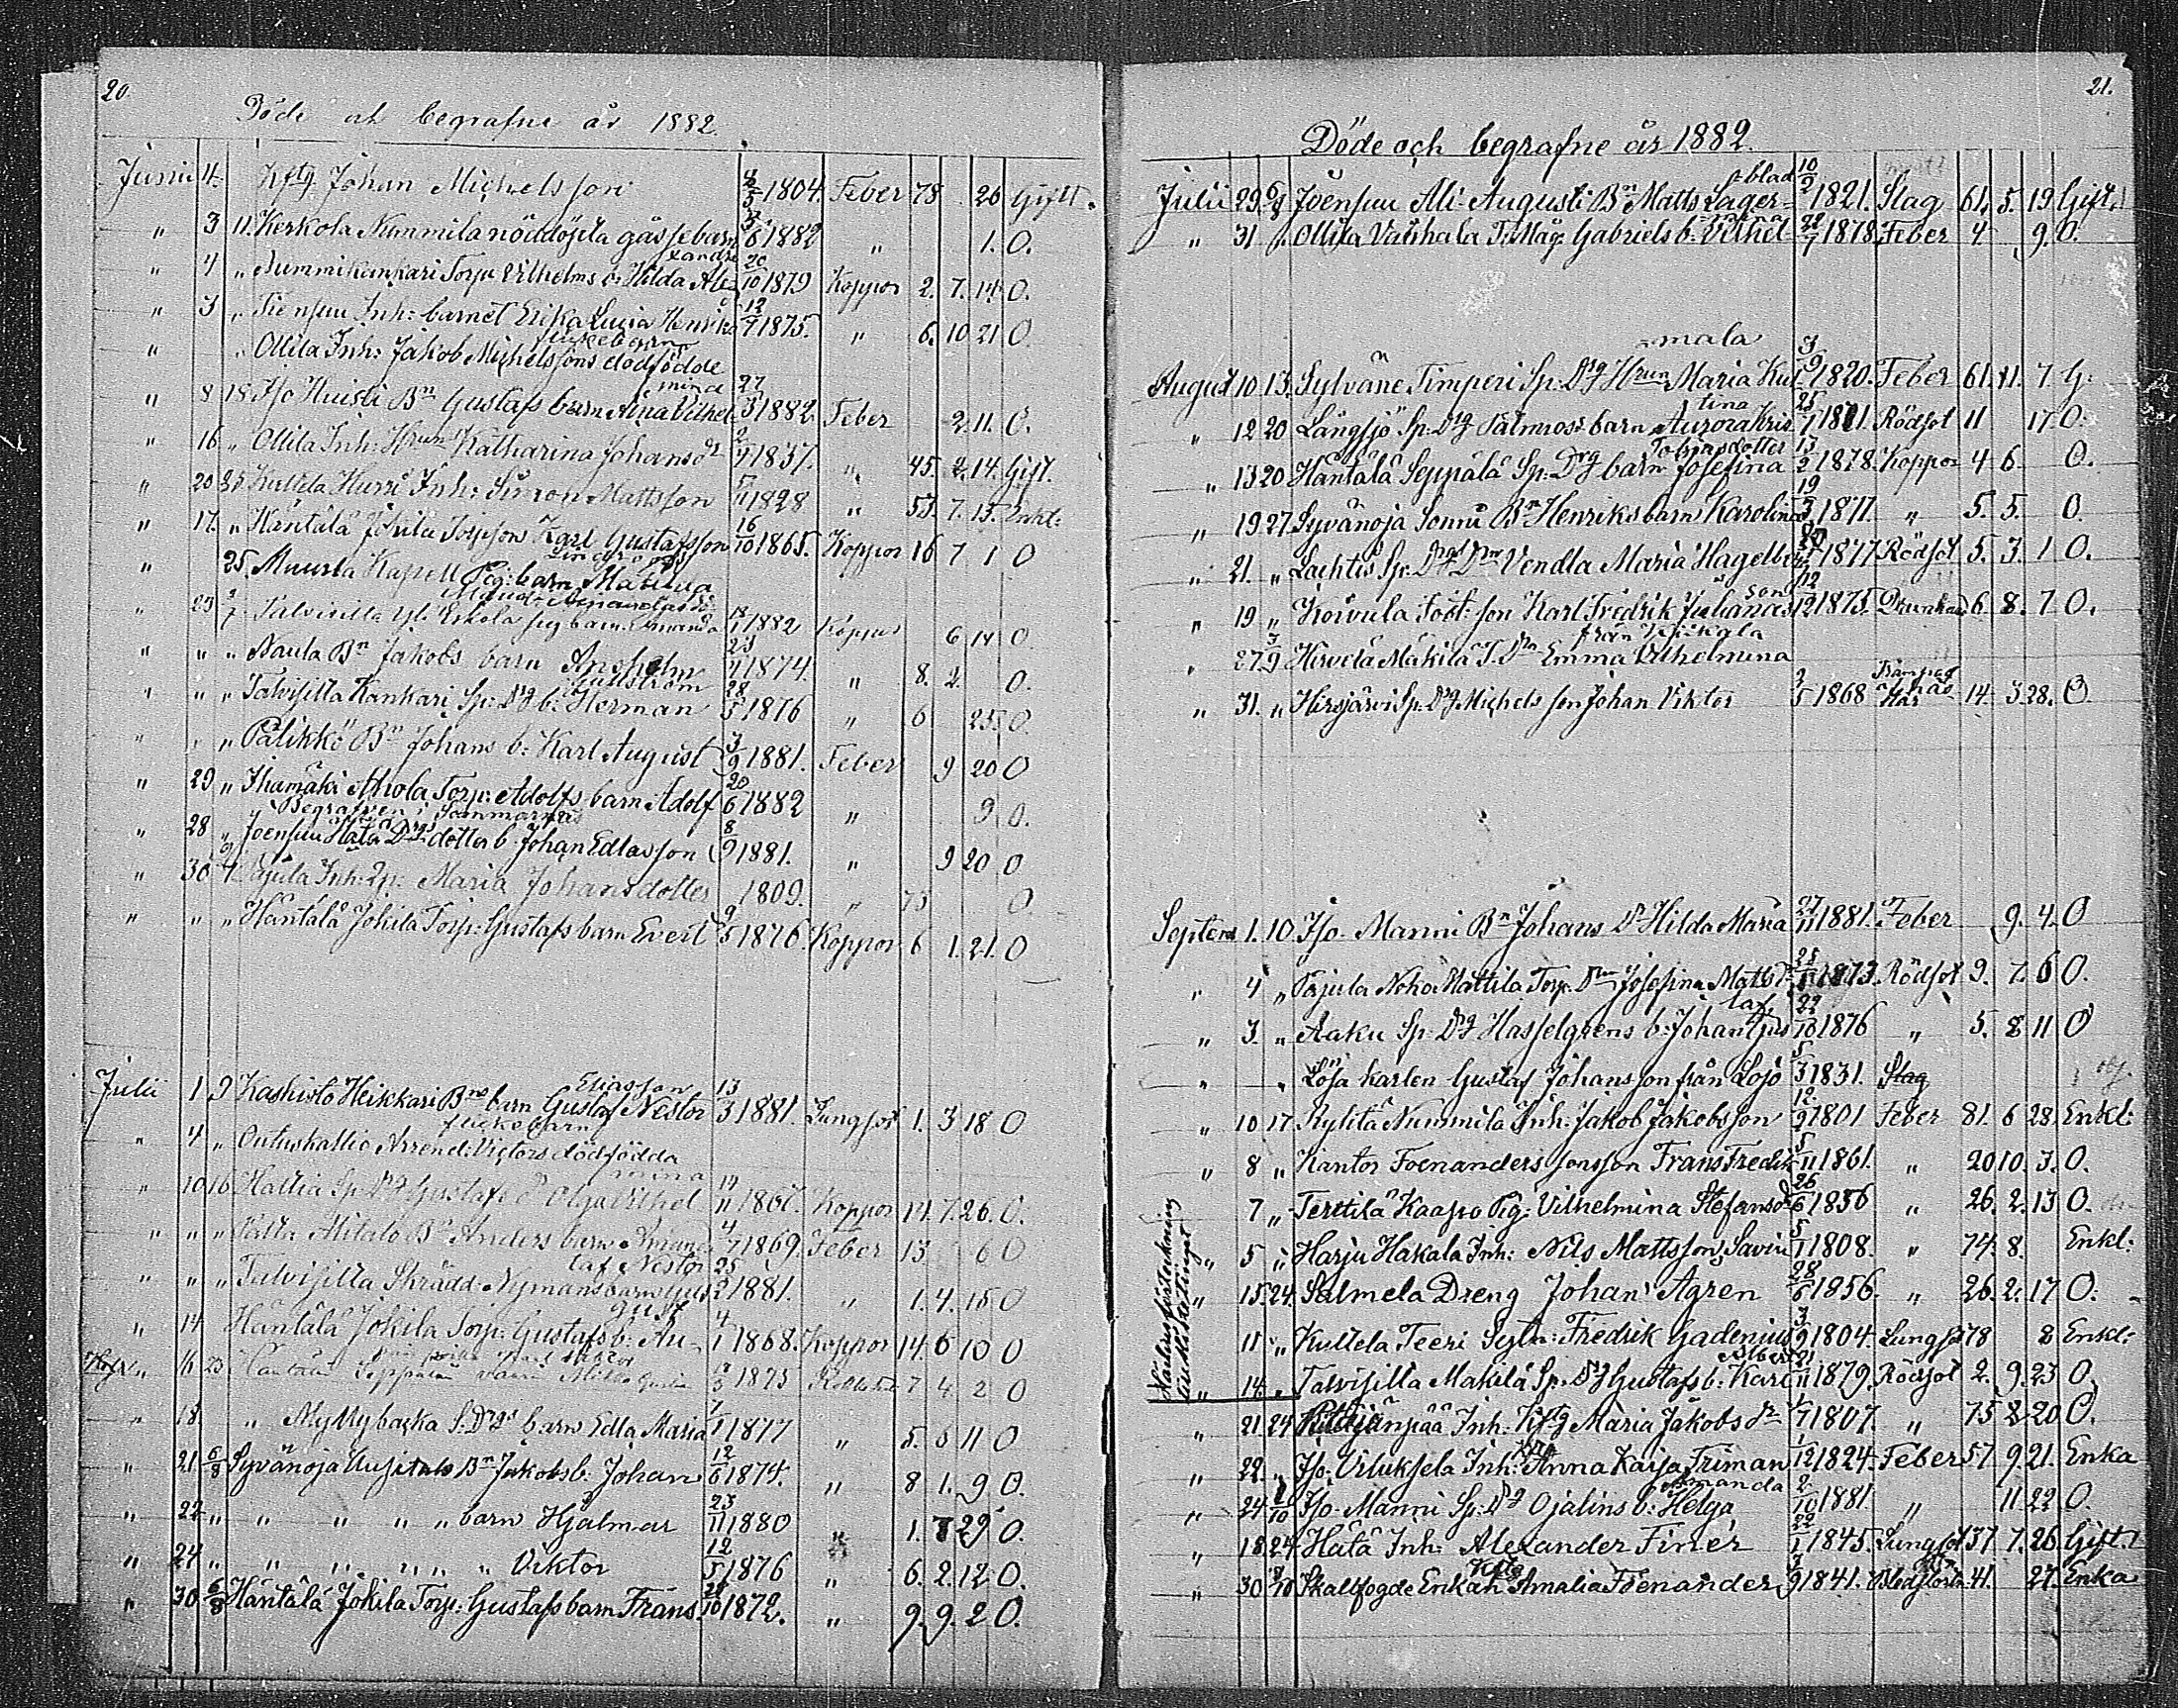 20.
Döde och begrafne år 1882.
Junii 4. Hftg Johan Michelsson 4/5 1804. Feber 78 26 Gift.
" 3 11. Kerkola Nummila nöddöpta gåssebarn 3/6 1882 " 1. O.
xandra
" 4 " Nummikankari Torp: Vilhelms b: Hilda Ale 20/10 1879 Koppor 2. 7. 14. O.
" 3 " Inh: barnet Erika Lucia Henrika 12/7 1875. " 6. 10 21 O
flickebarn
" " Ollila Inh: Jakob Michelssons dödfödde
mina
" 8 18. Sjo Huisti Bn Gustafs barn Aina Vilhel 27/3 1882. Feber 2 11. O.
" 16 " Ollila Inh: Hrun Katharina Johansdr 2/4 1837. " 45. 2. 14. Gift.
" 20 25 Kultela Hurri Inh: Simon Mattsson 5/11 1828 " 53. 7. 15. Enkl:
" 17. " Häntälä Jokila Torpson Karl Gustafsson 16/10 1865. Koppor 16 7 1 O
" 25. Muurla Kapell Pig: barn Matilda
" 29 2/7 Talvisilla Yli Eskola pig barn Amanda 1882 Koppor 6 14 O
" " " Naula Bn Jakobs barn Anshelm 23/4 1874. " 8. 2. O.
Gullström
" " " Talvisilla Kankari Sp: Drg b: Herman 28/5 1876 " 6 25 O.
" " " Palikkö Bn Johans b: Karl August 3/9 1881. Feber 9 20 O
" 29 " Ihamäki Ahola Torp: Adolfs barn Adolf 20/6 1882 " 9 O.
Begrafven i Sommarnäs
" 28 " Joensuu Hätä Drgs dotter b Johan Edlasson 8/9 1881. " 9 20 O
" 30 9/7 Pajula Inh: Maria Johansdotter 1809. " 73 O.
" " " Häntälä Jokila Torp: Gustafs barn Evert 9/5 1876. Koppor 6 1. 21. O
Eliasson
Julii 1 9 Kaskisto Heikkari Bns barn Gustaf Nestor 13/3 1881. Lungsot 1. 3 18 O
flickobarn
" 4 " Outuskallio Arrend: Victors dödfödda
mina
" 10 16 Hallia Sp Drg Gustafs dr Olga Vilhel 14/11 1867. Koppor 14. 7. 26. O.
" " " Palla Alitalo Bn Anders barn Amanda 4/7 1869. Feber 13 6 O
taf Nestor
" " " Talvisilla Skrädd. Nymans barn Gus 25/2 1881. " 1. 4. 15 O
gust
" 14 Häntälä Jokila Torp: Gustafs b: Au- 4/1 1868. Koppor 14. 6 10 O
" 16 23 Häntälä Seppälä 1875 7 4 2 O
" 18. " Myllybacka S: Drgs barn Edla Maria 7/1 1877 " 5. 6 11 O
" 21 6/8 Syvänoja Uusitalo Bn Jakobs b: Johan 12/6 1874. " 8 1. 9 O.
" 22 " " " " " barn Hjalmar 23/11 1880 " 1. 7 29 O.
" 24 " " " " " Viktor 12/5 1876 " 6. 2. 12 O.
" 30 6/8 Häntälä Jokila Torp: Gustafs barn Frans 28/10 1872. " 9. 9. 2 O.
21.
Döde och begrafne år 1882.
blad
Julii 29. 6/8 Joensuu Ali-Augusti Bn Matts Lager- 10/2 1821. Slag 61. 5. 19. Gift.
mina
" 31 " Ollila Vanhala T: Måg: Gabriels b: Vilhel- 22/7 1878. Feber 4 9. O.
mala
August 10. 13. Sylväne Timperi Sp: Drg Hrun Maria Kul 3/9 1820. Feber 61. 11. 7. G:
tina
" 12 20 Långsjö Sp: Drg Palmros barn Aurora Kris 25/7 1871. Rödsot 11 17. O.
Tobiasdotter
" 13 20 Häntälä Seppälä Sp: Drg barn Josefina 13/2 1878. Koppor 4 6. O.
" 19 27. Syvänoja Sonni Bn Henriks barn Karolina 19/3 1877. " 5. 5. O.
" 21. " Lachtis Sp: Drgs Dr Vendla Maria Hagelberg 20/5 1877. Rödsot 5. 3. 1 O.
son
" 19 " Koivula Tost: son Karl Fredrik Julianas 12/12 1875. Drunknad 6. 8. 7 O.
från Uskela
" 27. 3/9 Hirvelä Mäkilä T. Drn Emma Vilhelmina
" 31. " Hirsjärvi Sp: Drg Michels son Johan Viktor 2/5 1868 14. 3. 28. O.
Septem 1. 10. Sjo- Manni Bn Johans Dr Hilda Maria 27/11 1881. Feber 9. 4. O
" 4 " Pajula Noho Mattila Torp. Drn Josefina Matts dr 28/1 1873. Rödsot 9. 7. 6 O.
taf
" 3. " Aaku Sp: Drg Hasselgrens b: Johan Gus 22/10 1876 " 5. 8 11 O
" " Lösa karlen Gustaf Johansson från Lojo 5/3 1831. Slag
" 10 17. Rylitä Nummila Inh: Jakob Jakobsson 12/9 1801 Feber 81. 6 28. Enkl:
" 8 " Kantor Foenanders sonson Frans Fredrik 5/11 1861. " 20 10. 3. O.
" 7 " Terttilä Kaapro Pig: Vilhelmina Stefansdr 26/6 1856 " 26. 2. 13 O.
" 5 " Harju Hakala Inh: Nils Mattsson Savin 5/1 1808. " 74. 8. Enkl:
" 15. 24. Salmela Dreng Johan Agren 28/6 1856. " 26. 2. 17 O.
" 11 " Kultela Teeri Sytn: Fredrik Gadenius 3/9 1804. Lungsot 78 8 Enkl:
Albert
" 14. " Talvisilla Mäkilä Sp. Drg Gustafs b: Karl 21/11 1879. Rödsot 2. 9. 23 O.
" 21 24 Inh: Hftg Maria Jakobs dr 1/7 1807. " 75 2 20 O.
" 22. " Sjo- Viluksela Inh: Anna Kaisa Friman 1/12 1824. Feber 57. 9. 21. Enka
Amanda
" 24 1/10 Sjo- Manni Sp: Drg Ojalins b: Helga 2/10 1881. " 11 22 O.
" 18. 24. Hätä Inh: Alexander Finér 22/1 1845. Lungsot 37 7. 26 Gift.
" 30 8/10 Skallfogde Enkan Amalia Foenander 3/9 1841. 41. 27. Enka